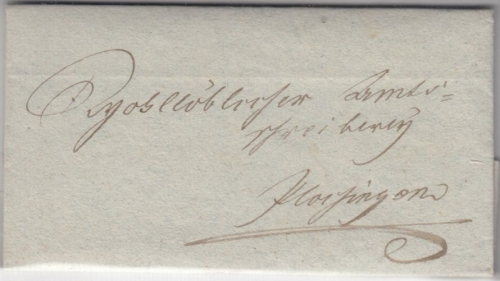 Wohllöblicher Amts=
schreiberey
Plochingen